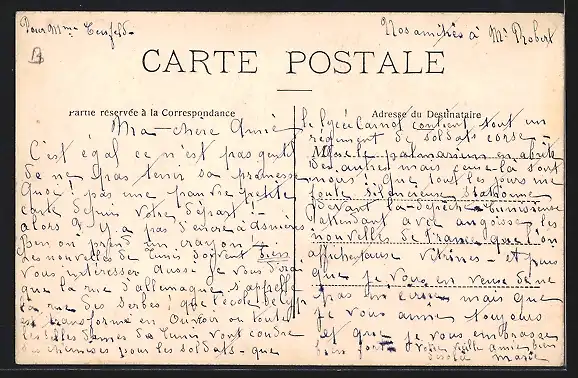 Pour Mme
Nos amitiés à Mr Robert
CARTE POSTALE
Partie réservée à la Correspondance
Adresse du Destinataire
Ma chère Amie
C'est égal ce n'est pas gentil
de ne pas tenir sa promesse
Quoi! pas une pauvre petite
carte depuis votre départ!
alors il y a pas d'encre à Asnières
Ben on prend un crayon!
Les nouvelles de Tunis doivent bien
vous intéresser aussi je vous dirai
que la rue d'allemagne s'appelle
la rue des Serbes! que l'école
est transformé en Ouvroir ou toute
les belles dames de Tunis vont coudre
des chemises pour les soldats - que
le lycée Carnot contient tout un
régiment de soldats corse -
que le palmarium en abrite
des autres mais ceux-là sont
que tous les jours une
foule silencieuse stationne
devant la dépêche tunisienne
attendant avec angoisse les
nouvelles de France que l'on
affiche aux vitrines - et puis
que je vous en veux de ne
pas m'écrire mais que
je vous aime toujours
et que je vous embrasse
bien fort votre vieille amie bien
désolée Marie